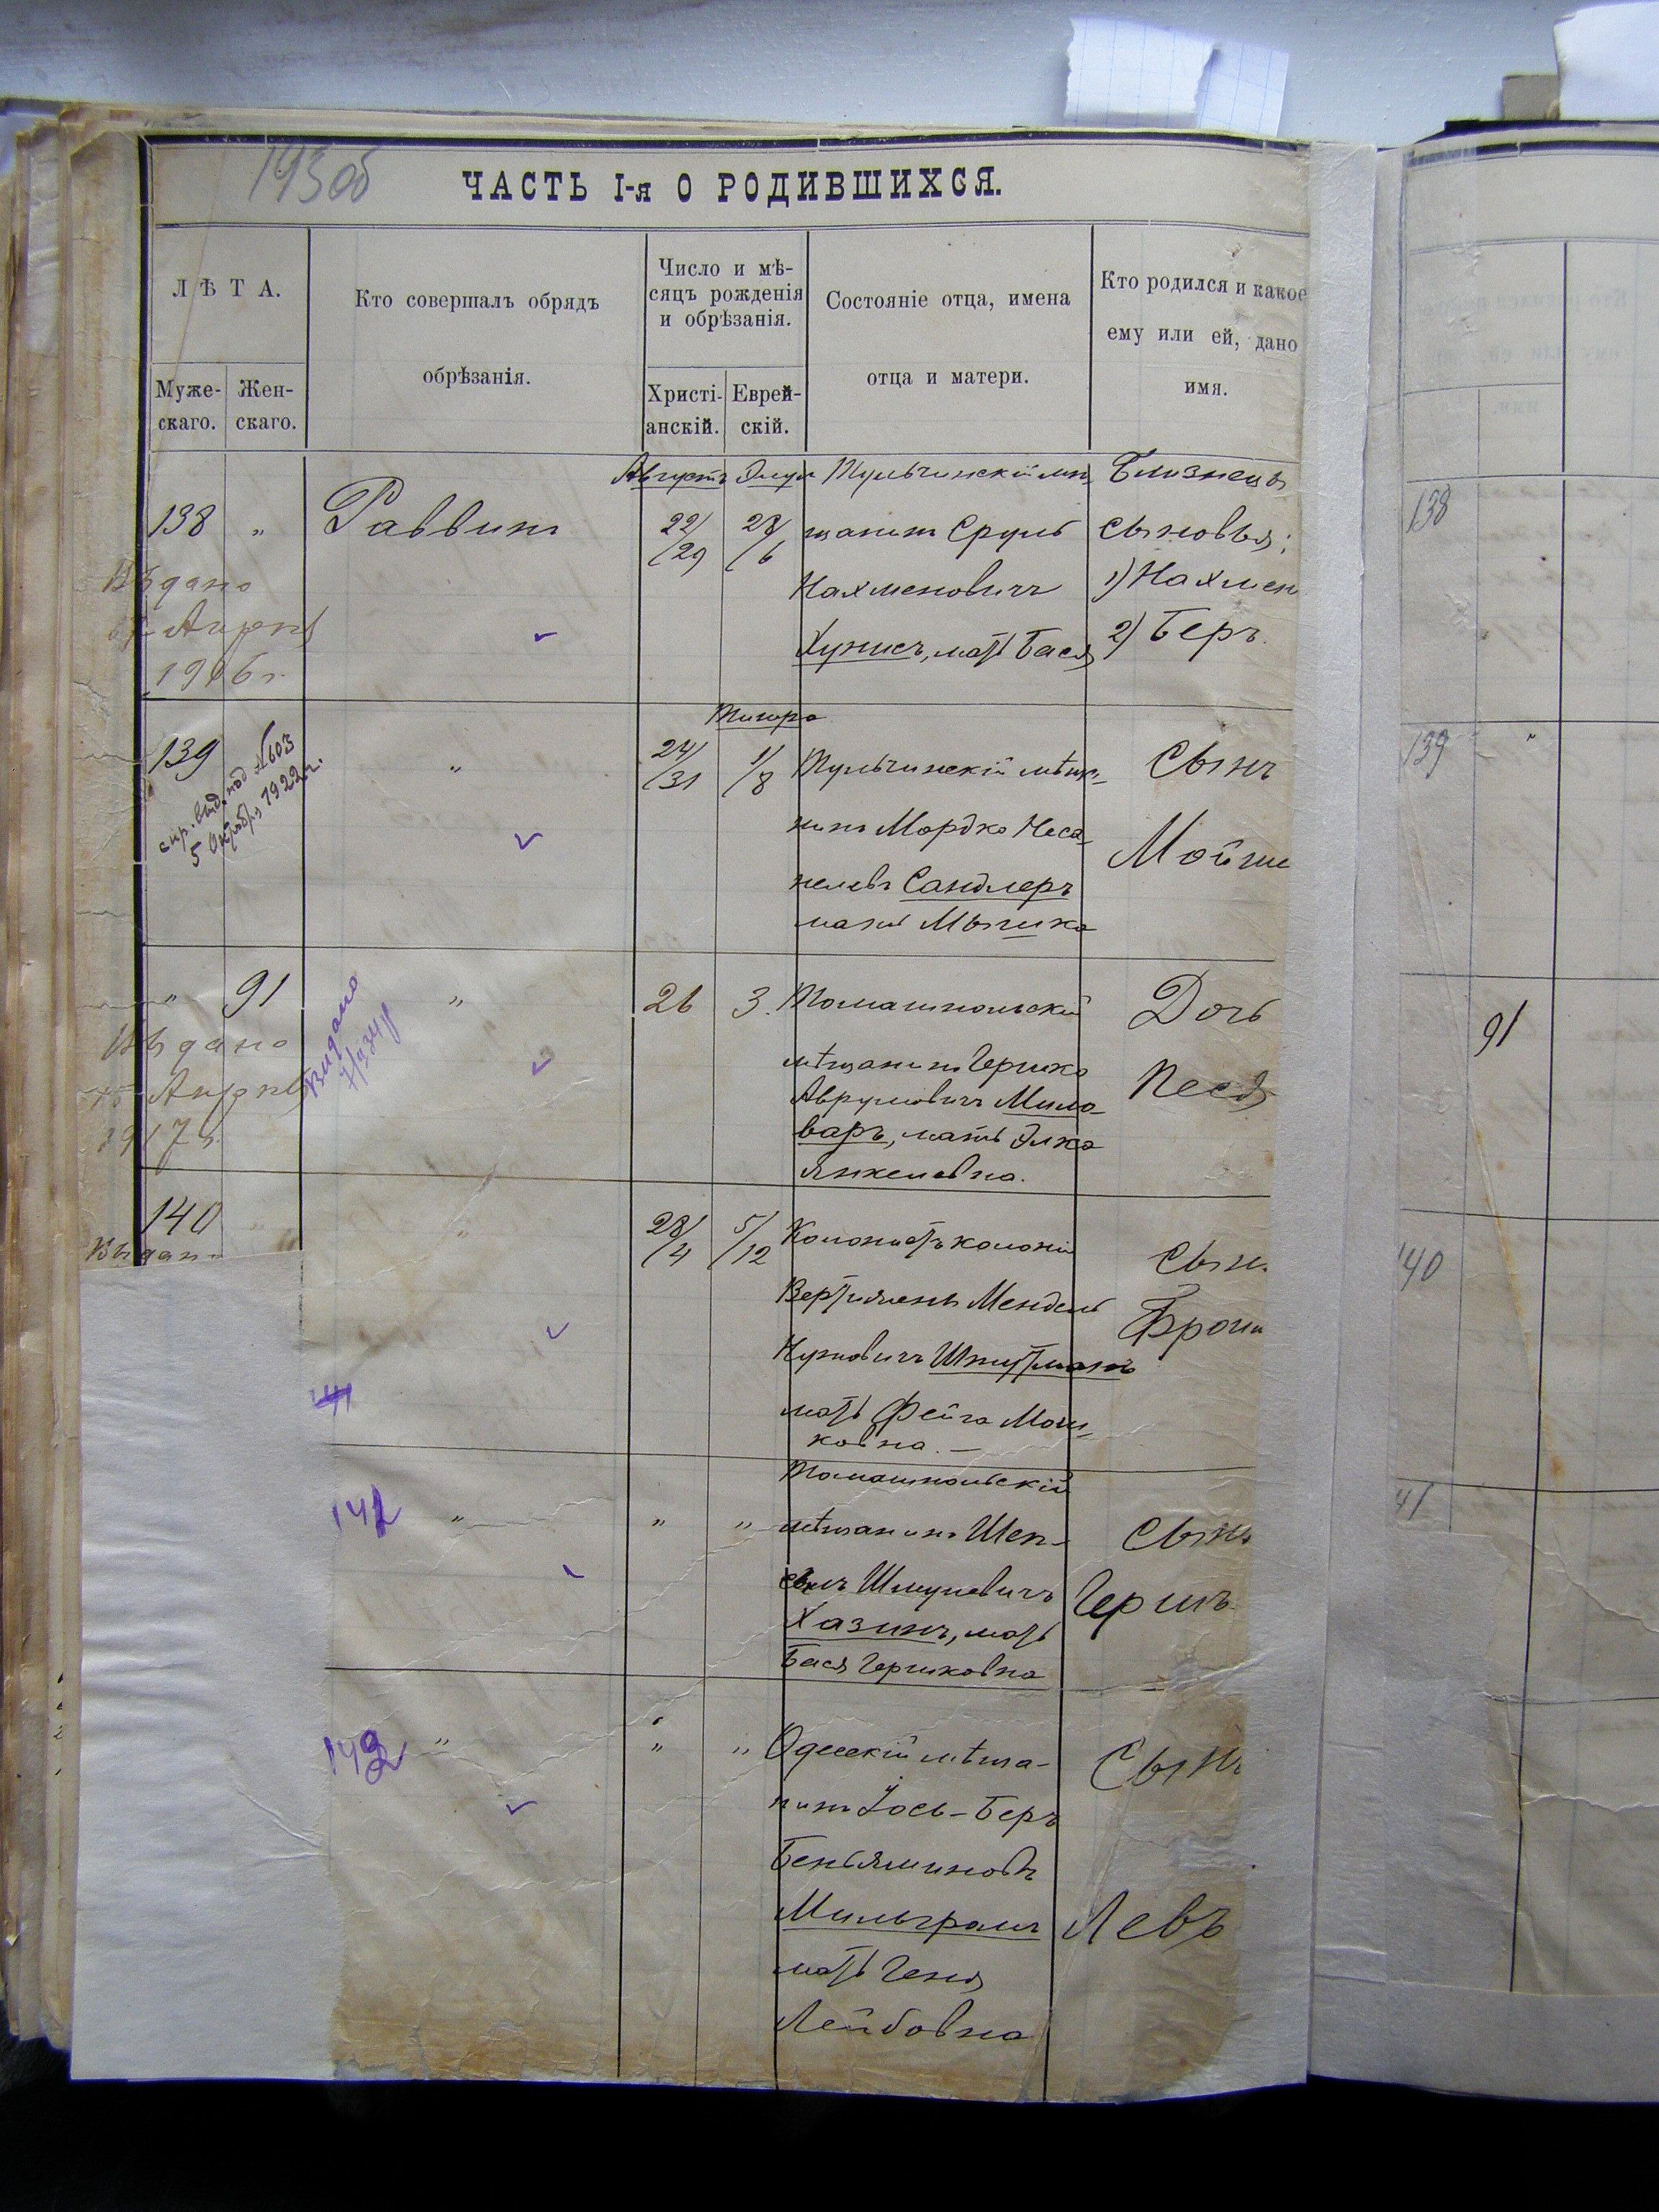 193об
ЧАСТЬ I-я О РОДИВШИХСЯ.
ЛѢТА.
Муже-
скаго.
Жен-
скаго.
Кто совершалъ обрядъ
обрѣзанія.
Число и мѣ-
сяцъ рожденія
и обрѣзанія.
Христі-
анскій.
Еврей-
скій.
Состояніе отца, имена
отца и матери.
Кто родился и какое
ему или ей, дано
имя.
138 „ Раввинъ
Августъ Элул
22/29 28/6
Тульчинскій мѣ-
щанинъ Сруль
Нахменовичъ
Хунисъ, мать Бася
Близнецы
сыновья:
1) Нахмен
2) Беръ.
Выдано
Апрѣля
1906 г.
139 „
спр. выд. под №603
5 Октября 1922 г.
Тишра
24/31 1/8
Тульчинскій мѣща-
нинъ Мордко Неса-
нелевъ Сандлеръ
мать Мышка
Сынъ
Мойше
„ 91 „
Выдано
15 Апрѣля
1917 г.
Видано
26 3.
Томашпольскій
мѣщанинъ Гершко
Аврумовичъ Мило-
варъ, мать Элка
Янкелевна.
Дочь
Песя
140 „ „
Выдано
28/4 5/12
Колонистъ колоніи
Вертюжень Мендель
Нуховичъ Шнитманъ
мать Фейга Мош-
ковна. —
Сын.
Фроим
141
142 „ „ „
Томашпольскій
мѣщанинъ Шеп-
сель Шмулевичъ
Хазинъ, мать
Бася Гершковна
Сынъ
Гершъ
142 „ „ „
Одесскій мѣща-
нинъ Іось-Беръ
Беньяминовъ
Мильграмъ
мать Геня
Лейбовна
Сынъ
Левъ
138
139 „
91
140
41